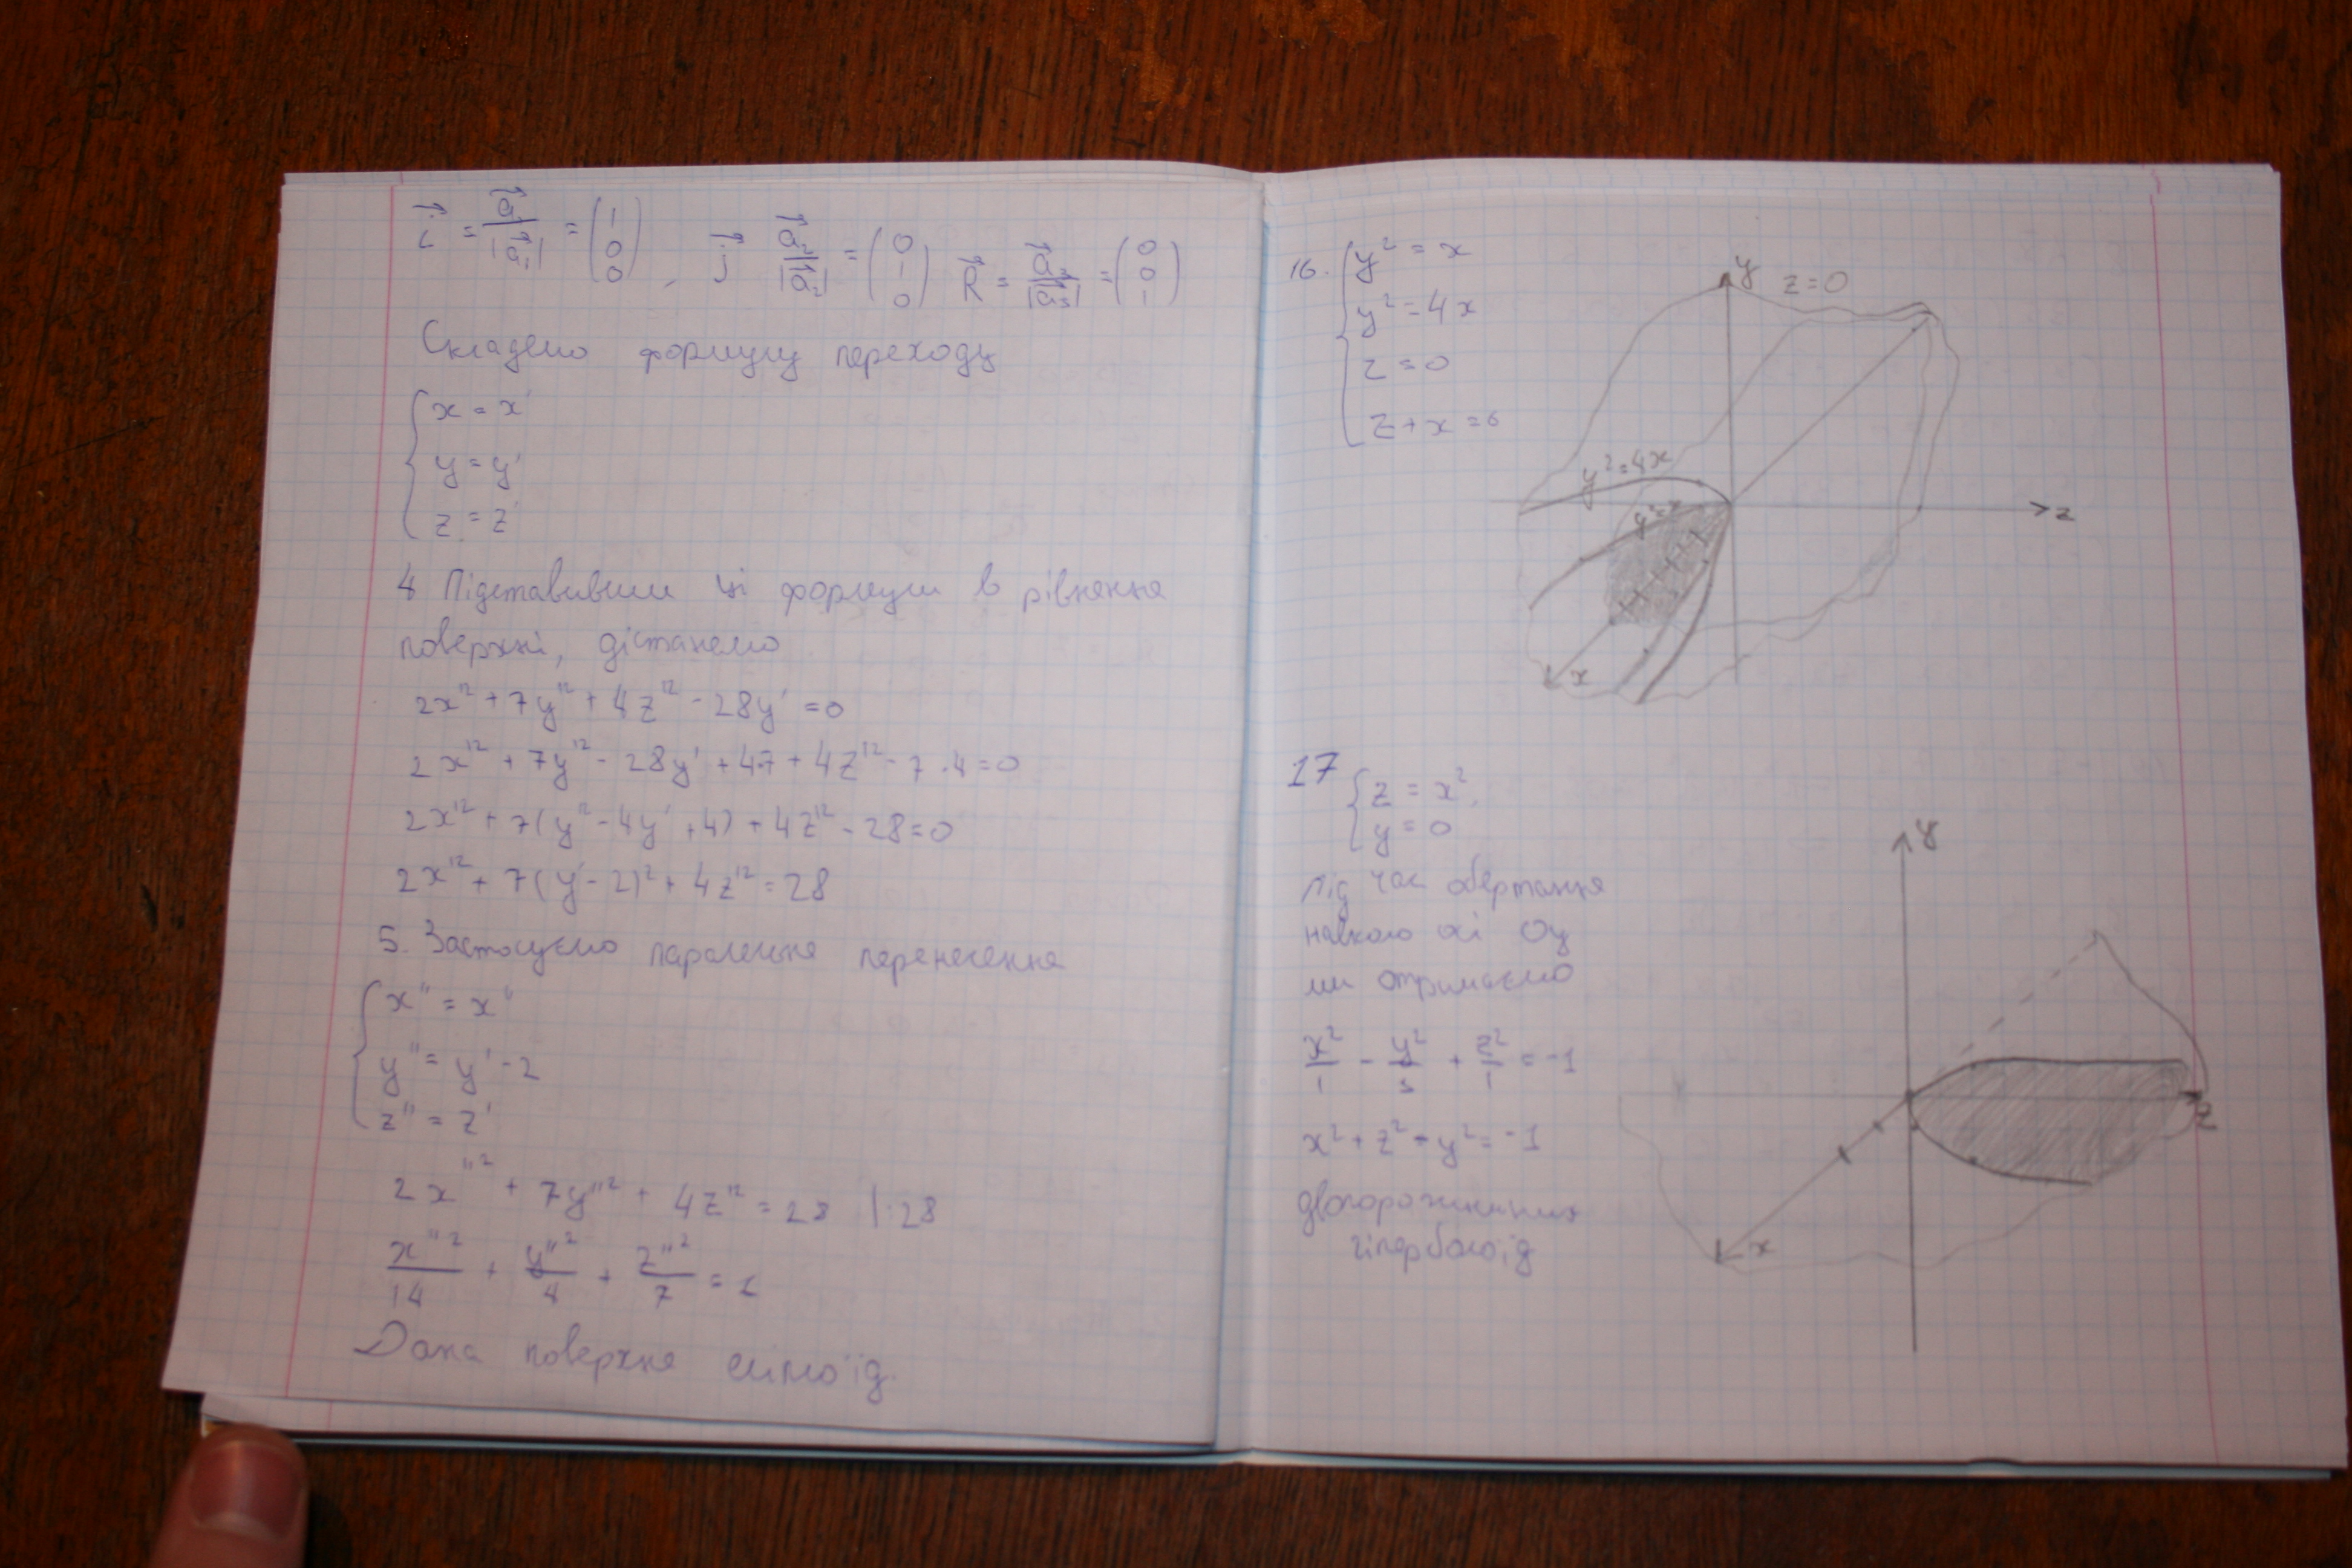 i⃗ = a⃗₁/|a⃗₁| = (1 0 0), j⃗ a⃗₂/|a⃗₂| = (0 1 0) k⃗ = a⃗₃/|a⃗₃| = (0 0 1)
Складемо формулу переходу
{ x = x'
y = y'
z = z'
4 Підставивши ці формули в рівняння
поверхні, дістанемо
2x'² + 7y'² + 4z'² - 28y' = 0
2x'² + 7y'² - 28y' + 4·7 + 4z'² - 7·4 = 0
2x'² + 7(y'² - 4y' + 4) + 4z'² - 28 = 0
2x'² + 7(y' - 2)² + 4z'² = 28
5. Застосуємо паралельне перенесення
{ x'' = x''
y'' = y' - 2
z'' = z'
2x''² + 7y''² + 4z''² = 28 | : 28
x''²/14 + y''²/4 + z''²/7 = 1
Дана поверхня еліпсоїд.
16. { y² = x
y² = 4x
z = 0
z + x = 6
y
z = 0
y² = 4x
y² = x
z
x
17 { z = x²,
y = 0
Під час обертання
навколо осі Oy
ми отримаємо
x²/1 - y²/1 + z²/1 = -1
x² + z² - y² = -1
двопорожнинний
гіперболоїд
y
z
x